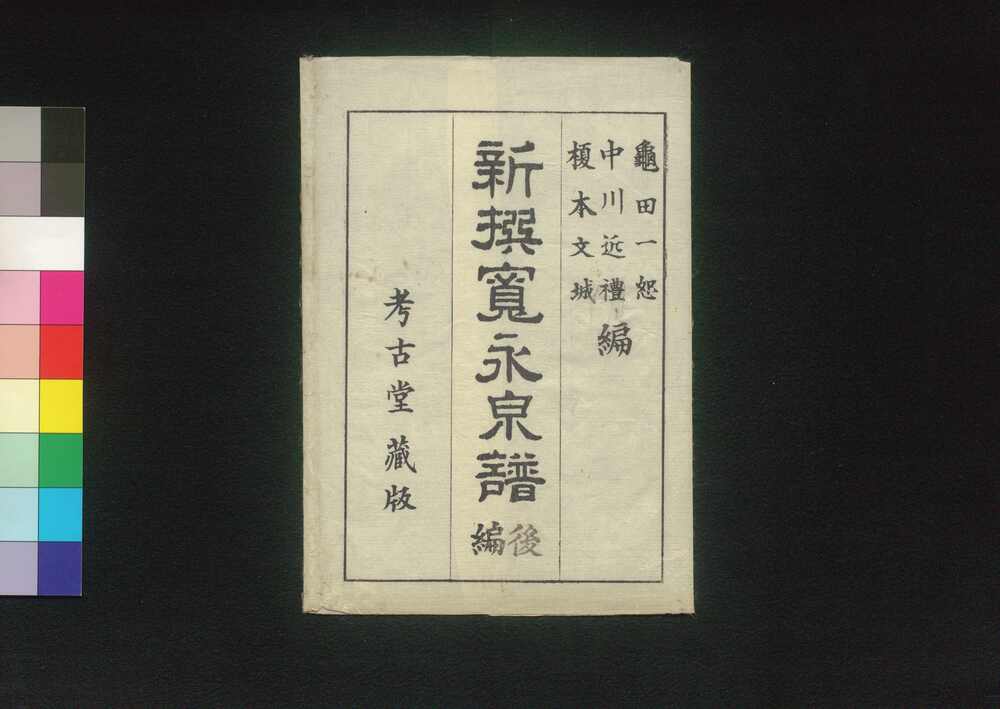 龜田一恕
中川近禮
榎本文城
編
新撰寬永泉譜
後編
考古堂藏版